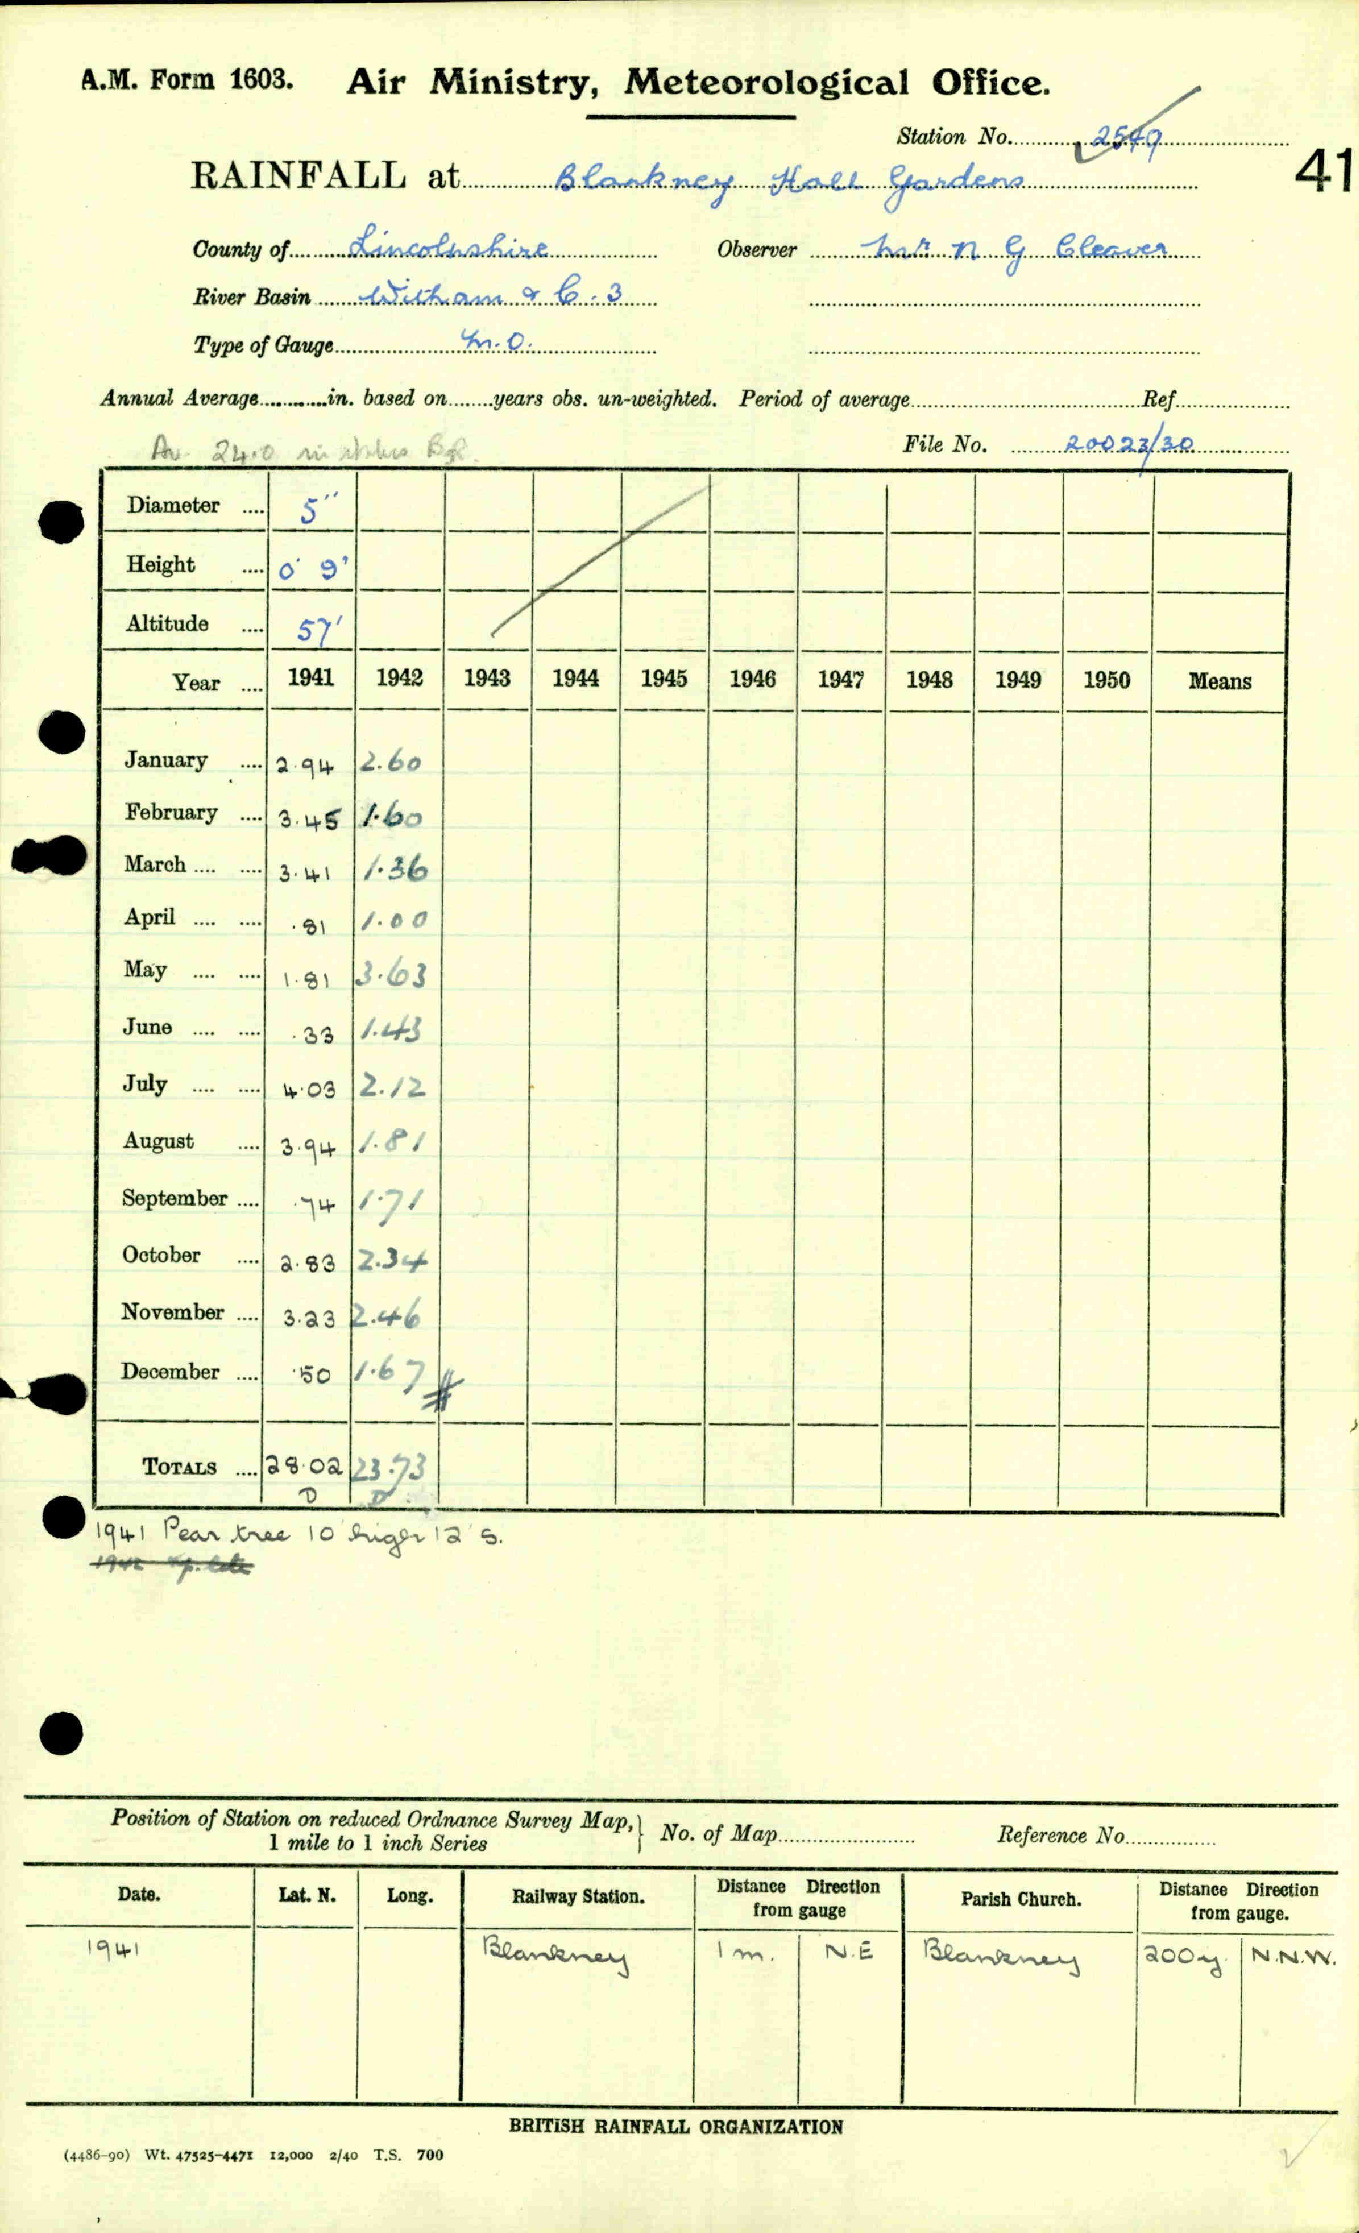 A.M. Form 1603. Air Ministry, Meteorological Office.
Station No. 2549
41
RAINFALL at Blankney Hall Gardens
County of Lincolnshire Observer Mr. N G Cleaver
River Basin Witham & C. 3
Type of Gauge M.O.
Annual Average in. based on years obs. un-weighted. Period of average Ref.
Av. 24.0
File No. 20023/30
Diameter .... 5"
Height .... 0' 9"
Altitude .... 57'
Year .... 1941 1942 1943 1944 1945 1946 1947 1948 1949 1950 Means
January .... 2.94 2.60
February .... 3.45 1.60
March .... .... 3.41 1.36
April .... .... .81 1.00
May .... .... 1.81 3.63
June .... .... .33 1.43
July .... .... 4.03 2.12
August .... 3.94 1.81
September .... .74 1.71
October .... 2.83 2.34
November .... 3.23 2.46
December .... .50 1.67
TOTALS .... 28.02 23.73
D D
1941 Pear tree 10' higer 12' S.
1942
Position of Station on reduced Ordnance Survey Map, } No. of Map Reference No.
1 mile to 1 inch Series
Date. Lat. N. Long. Railway Station. Distance Direction from gauge Parish Church. Distance Direction from gauge.
1941 Blankney 1 m. N.E Blankney 200 y. N.N.W.
BRITISH RAINFALL ORGANIZATION
(4486-90) Wt. 47525-4471 12,000 2/40 T.S. 700